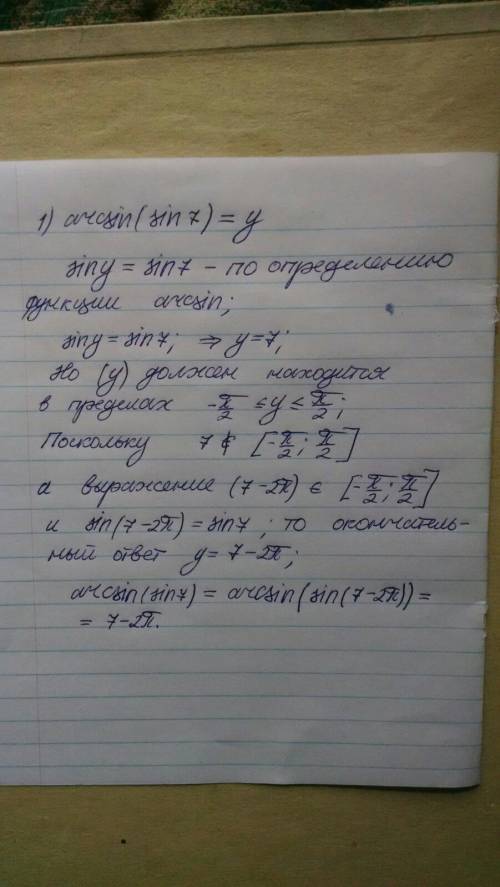 1) arcsin(sin 7) = y
sin y = sin 7 - по определению
функции arcsin;
sin y = sin 7; ⇒ y = 7;
Но (y) должен находится
в пределах -π/2 ≤ y ≤ π/2;
Поскольку 7 ∉ [-π/2; π/2]
а выражение (7-2π) ∈ [-π/2; π/2]
и sin(7-2π) = sin 7; то окончатель-
ный ответ y = 7-2π;
arcsin(sin 7) = arcsin(sin(7-2π)) =
= 7-2π.